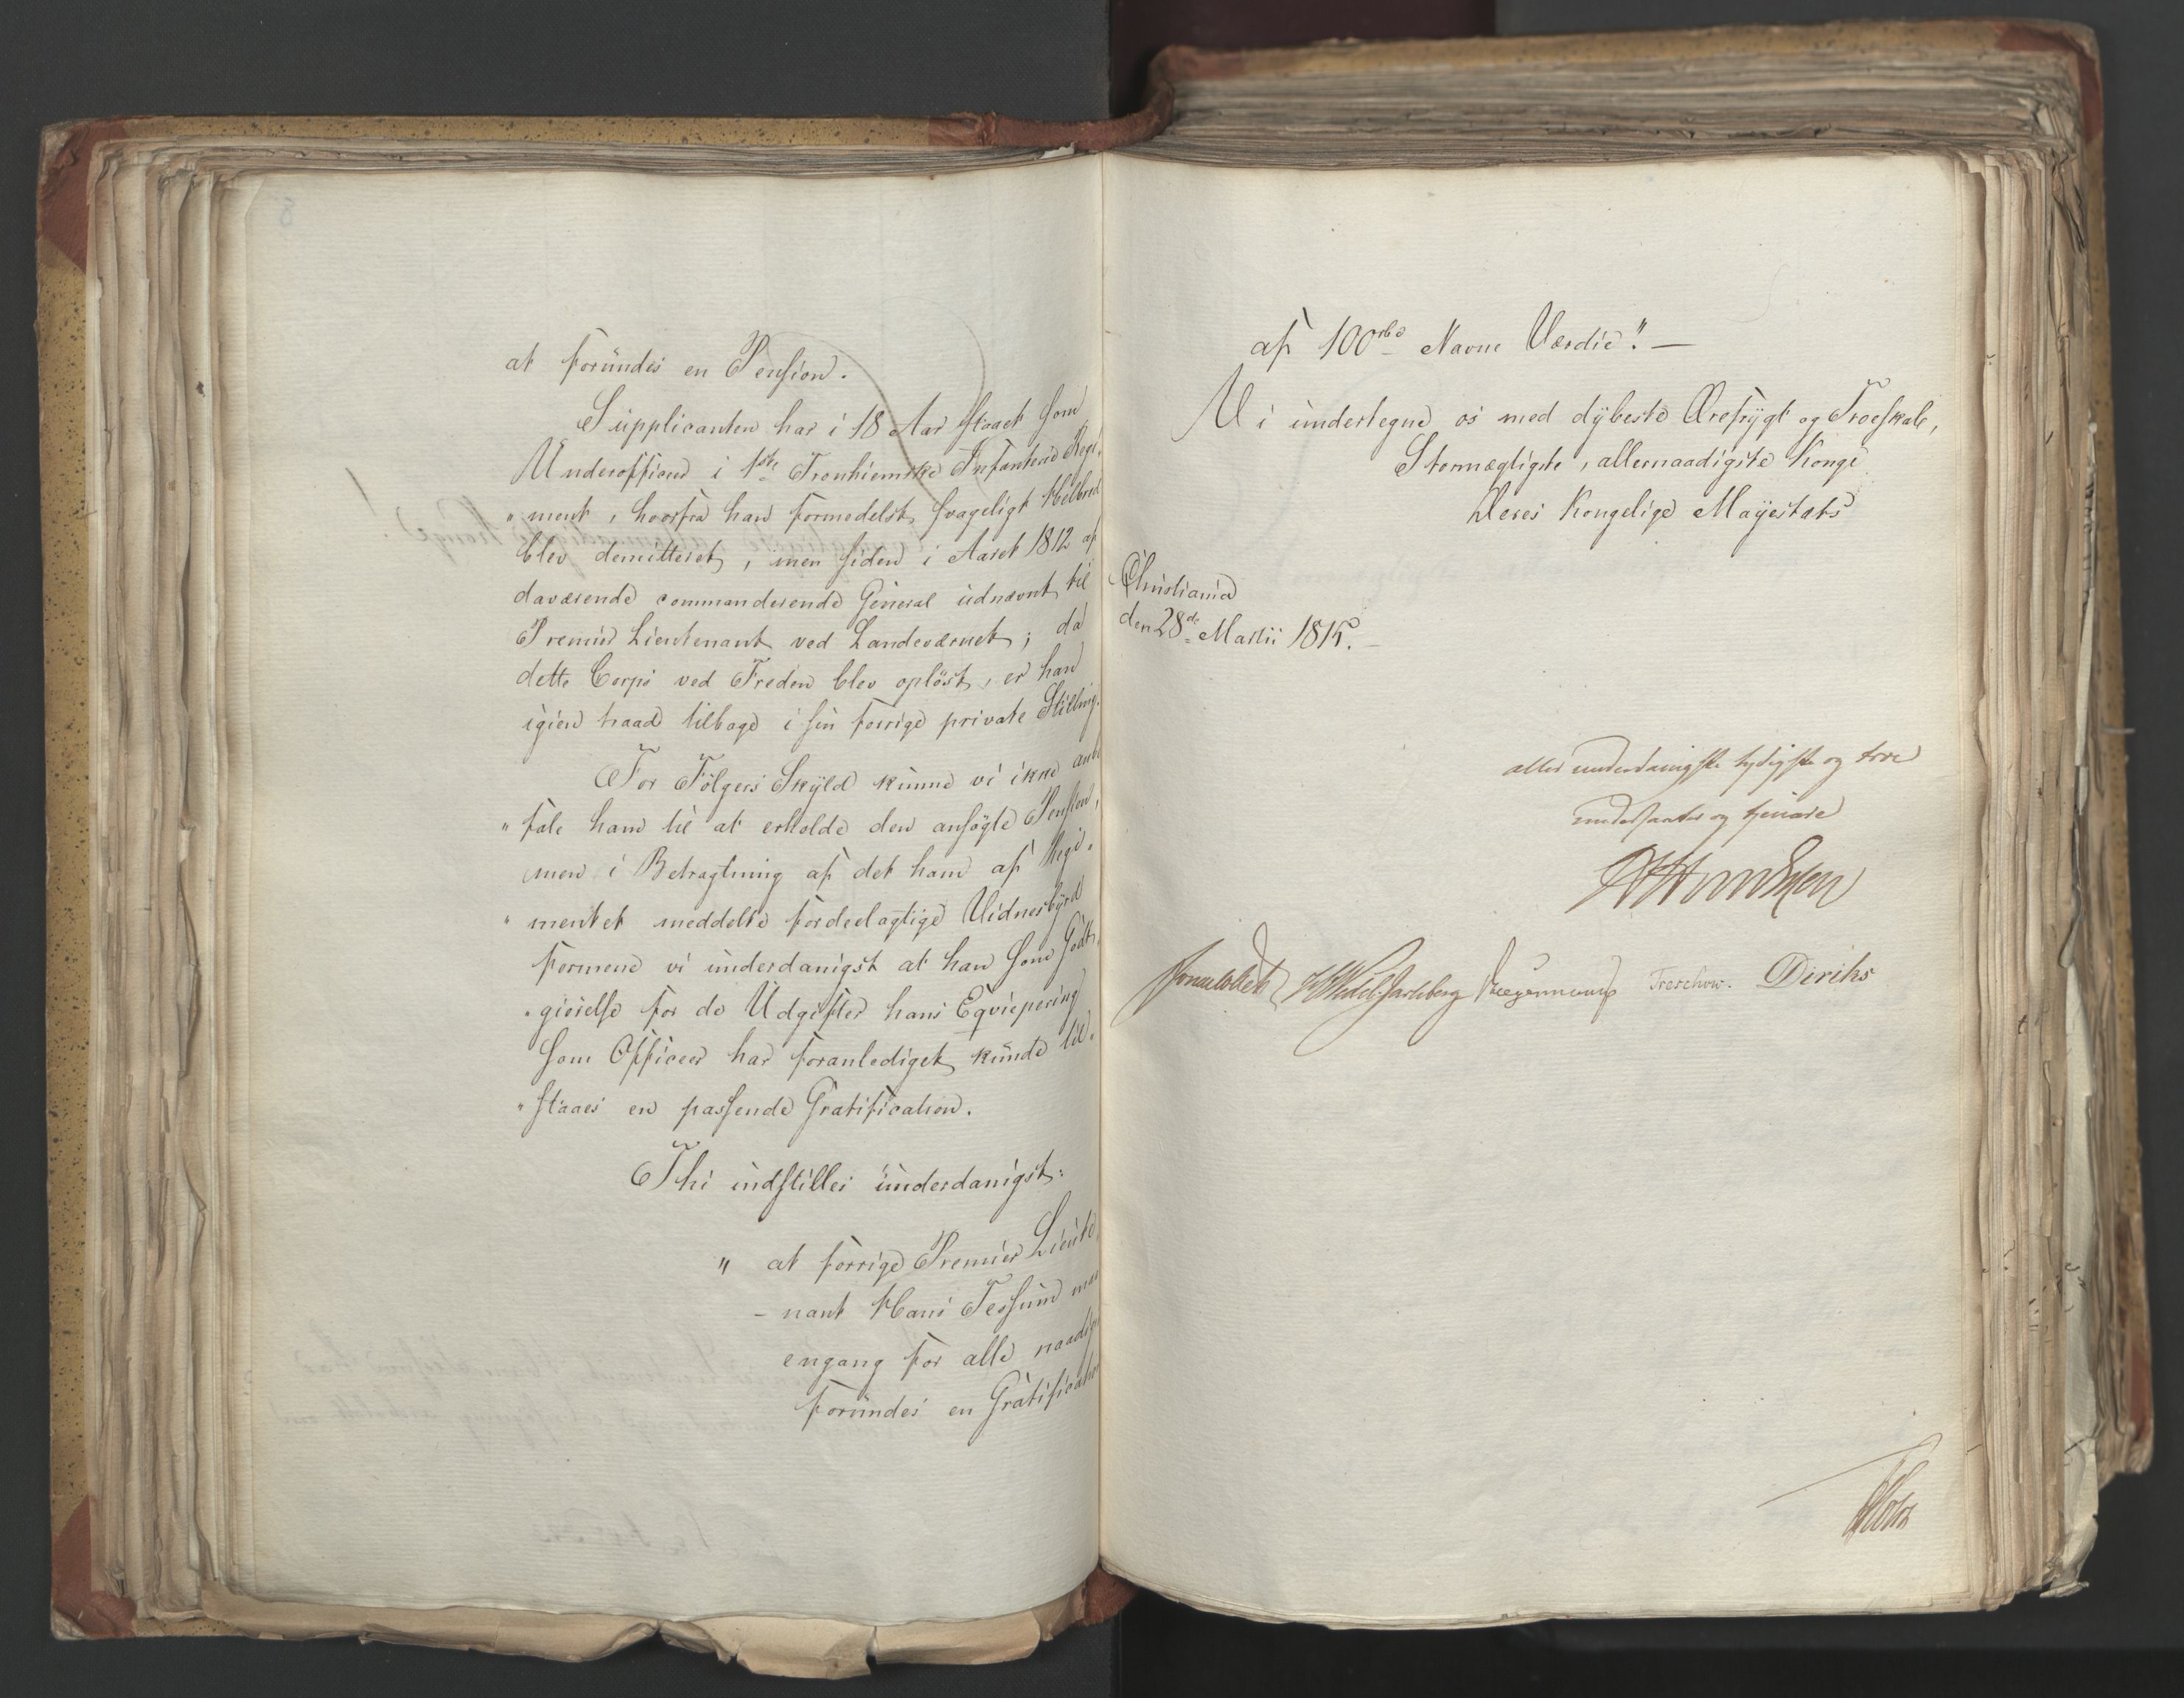 at forundes en Pension.
Supplicanten har i 18 Aar staaet som
Underofficeer i 1ste Tronhiemske Infanterie Regi-
"ment, hvorfra han formedelst svageligt Helbred
blev demitteret, men siden i Aaret 1812 af
daværende commanderende General udnævnt til
Premier Lieutenant ved Landeværnet; da
dette Corps ved Freden blev opløst, er han
igien traad tilbage i sin forrige private Stilling.
For Følgers Skyld kunne vi ikke anbe
"fale ham til at erholde den ansøgte Pension,
men i Betragtning af det ham af Regi-
"mentet meddelte fordeelagtige Vidnesbyrd
formene vi underdanigst at han som Godt-
"giørelse for de Udgifter hans Eqviepering
som Officeer har foranlediget kunde til-
"staaes en passende Gratification.
Thi indstilles underdanigst:
" at forrige Premier Lieute
- nant Hans Tessum maa
engang for alle naadigst
forundes en Gratification
af 100 rbd Navne Værdie." —
Vi undertegne os med dybeste Ærefrygt og Troeskab,
Stormægtigste, allernaadigste Konge
Deres Kongelige Mayestæts
Christiania
den 28de Martii 1815. -
allerunderdanigste lydigste og troe
undersaatter og tjenere
Sommerhielm HWedelJarlsberg Hegermann Treschow. Diriks
Holst